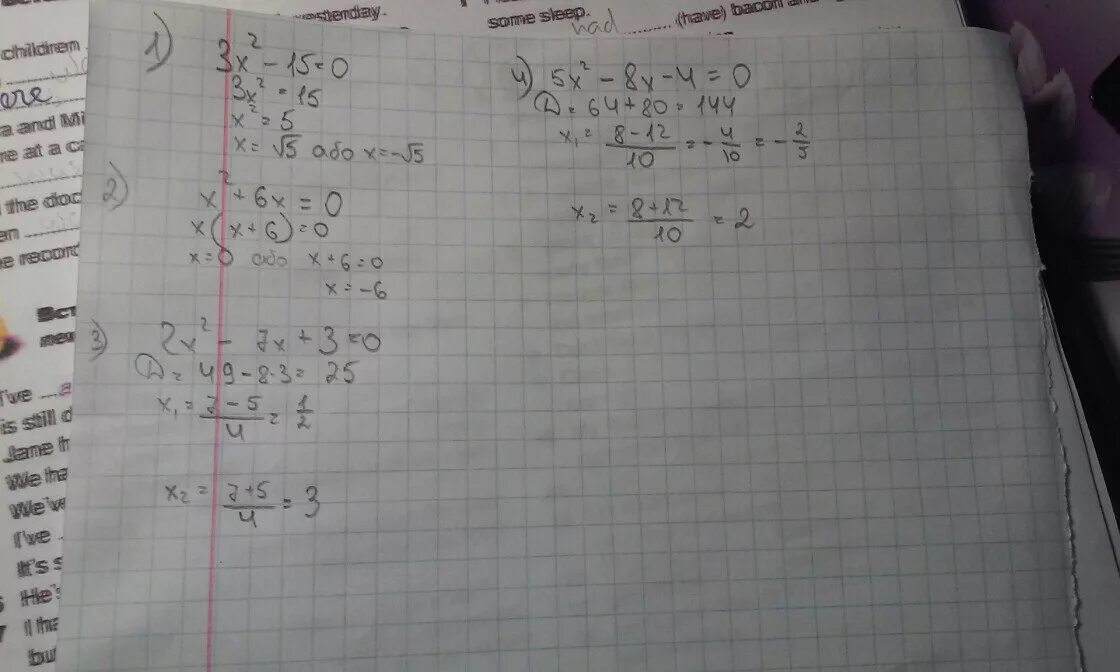 yesterday.
some sleep.
had
(have) bacon
children
ere
a and Mi
re at a ca
the doc
en
e record
Вст
I've
is still d
Jane h
We ha
We've
I've
It's s
He's
I ha
bu
1) 3x² - 15 = 0
3x² = 15
x² = 5
x = √5 або x = -√5
2) x² + 6x = 0
x(x+6) = 0
x = 0 або x + 6 = 0
x = -6
3) 2x² - 7x + 3 = 0
D = 49 - 8·3 = 25
x₁ = (7-5)/4 = 1/2
x₂ = (7+5)/4 = 3
4) 5x² - 8x - 4 = 0
D = 64 + 80 = 144
x₁ = (8-12)/10 = -4/10 = -2/5
x₂ = (8+12)/10 = 2